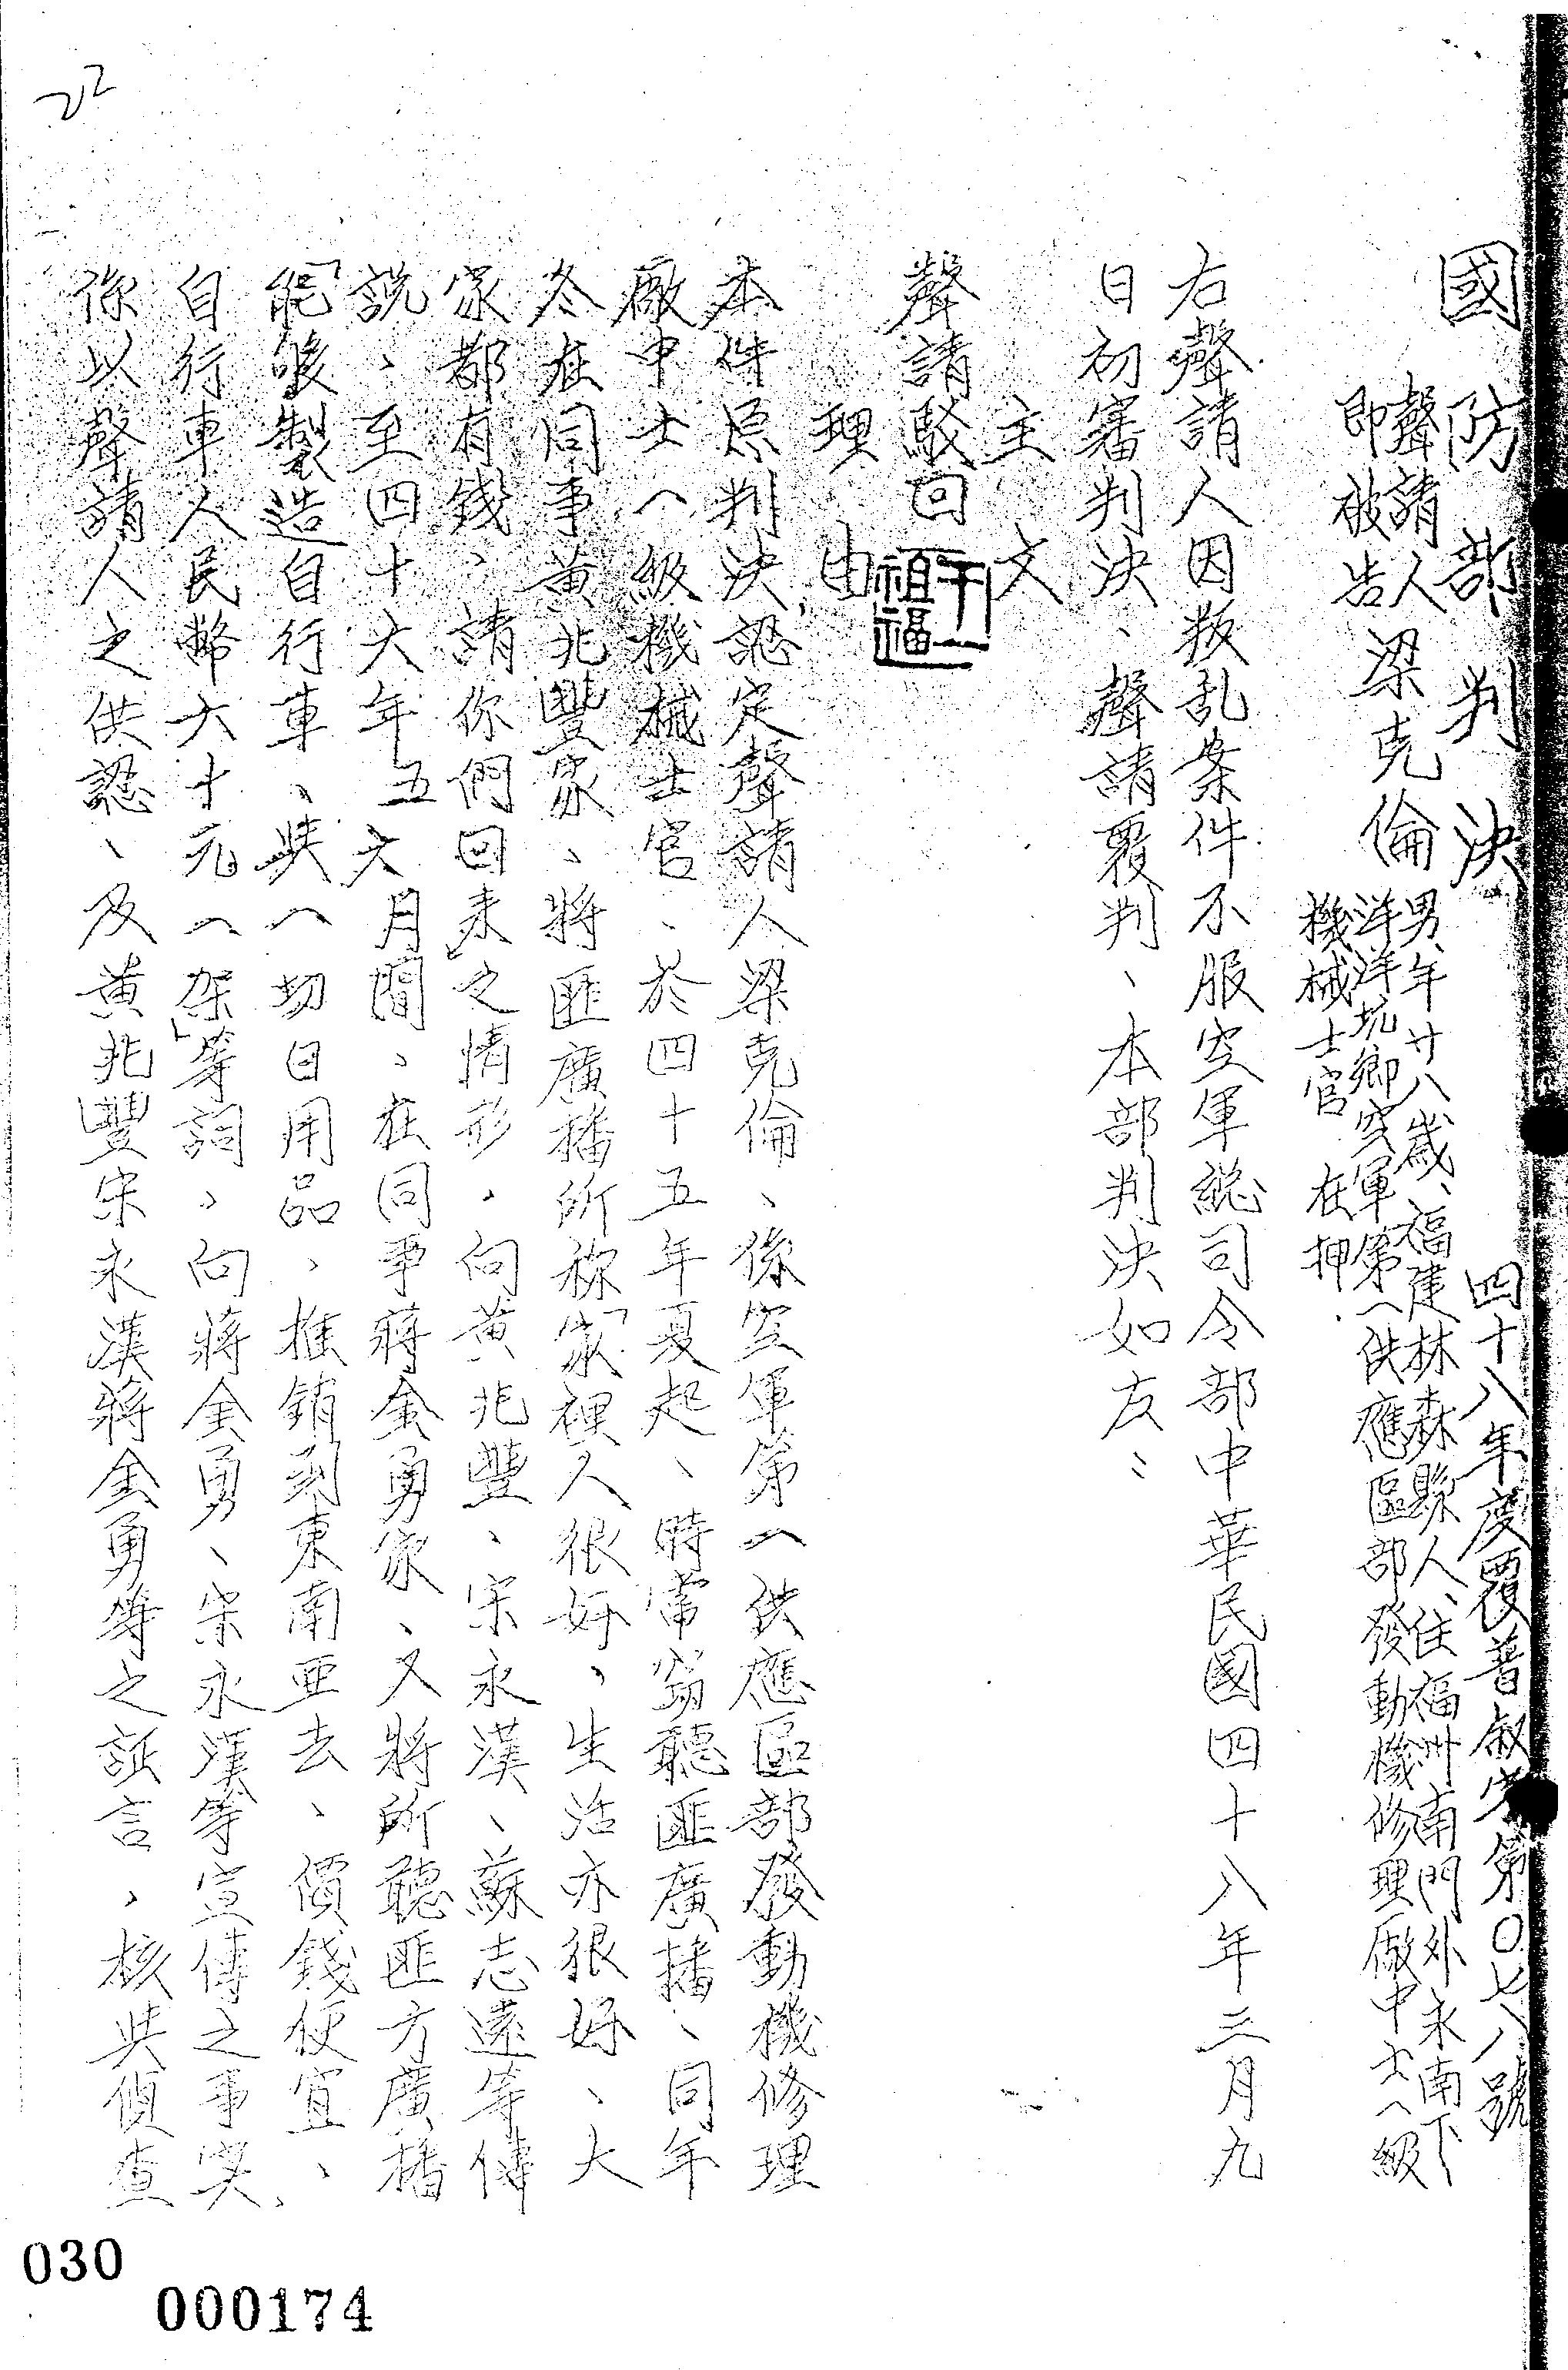 國防部判決 四十八年度覆普敍字第〇七八號
聲請人
即被告 梁克倫 男、年廿八歲、福建林森縣人、住福州南門外永南下
洋洋坑鄉空軍第一供應區部發動機修理廠中士一級
機械士官 在押.
右聲請人因叛乱案件不服空軍總司令部中華民國四十八年三月九
日初審判決、聲請覆判、本部判決如左：
主文
聲請駁回
理由
本件原判決認定聲請人梁克倫、係空軍第一供應區部發動機修理
廠中士一級機械士官、於四十五年夏起、時常竊聽匪廣播、同年
冬在同事黃兆豐家、將匪廣播所称「家裡人很好、生活亦很好、大
家都有錢、請你們回来」之情形、向黃兆豐、宋永漢、蘇志遠等傳
說、至四十六年五六月間、在同事蔣金勇家、又將所聽匪方廣播
「能够製造自行車、與一切日用品、推銷到東南亚去、價錢便宜、
自行車人民幣六十元一架」等詞、向蔣金勇、宋永漢等宣傳之事实、
係以聲請人之供認、及黃兆豐宋永漢蔣金勇等之証言、核與偵查
030
000174
22